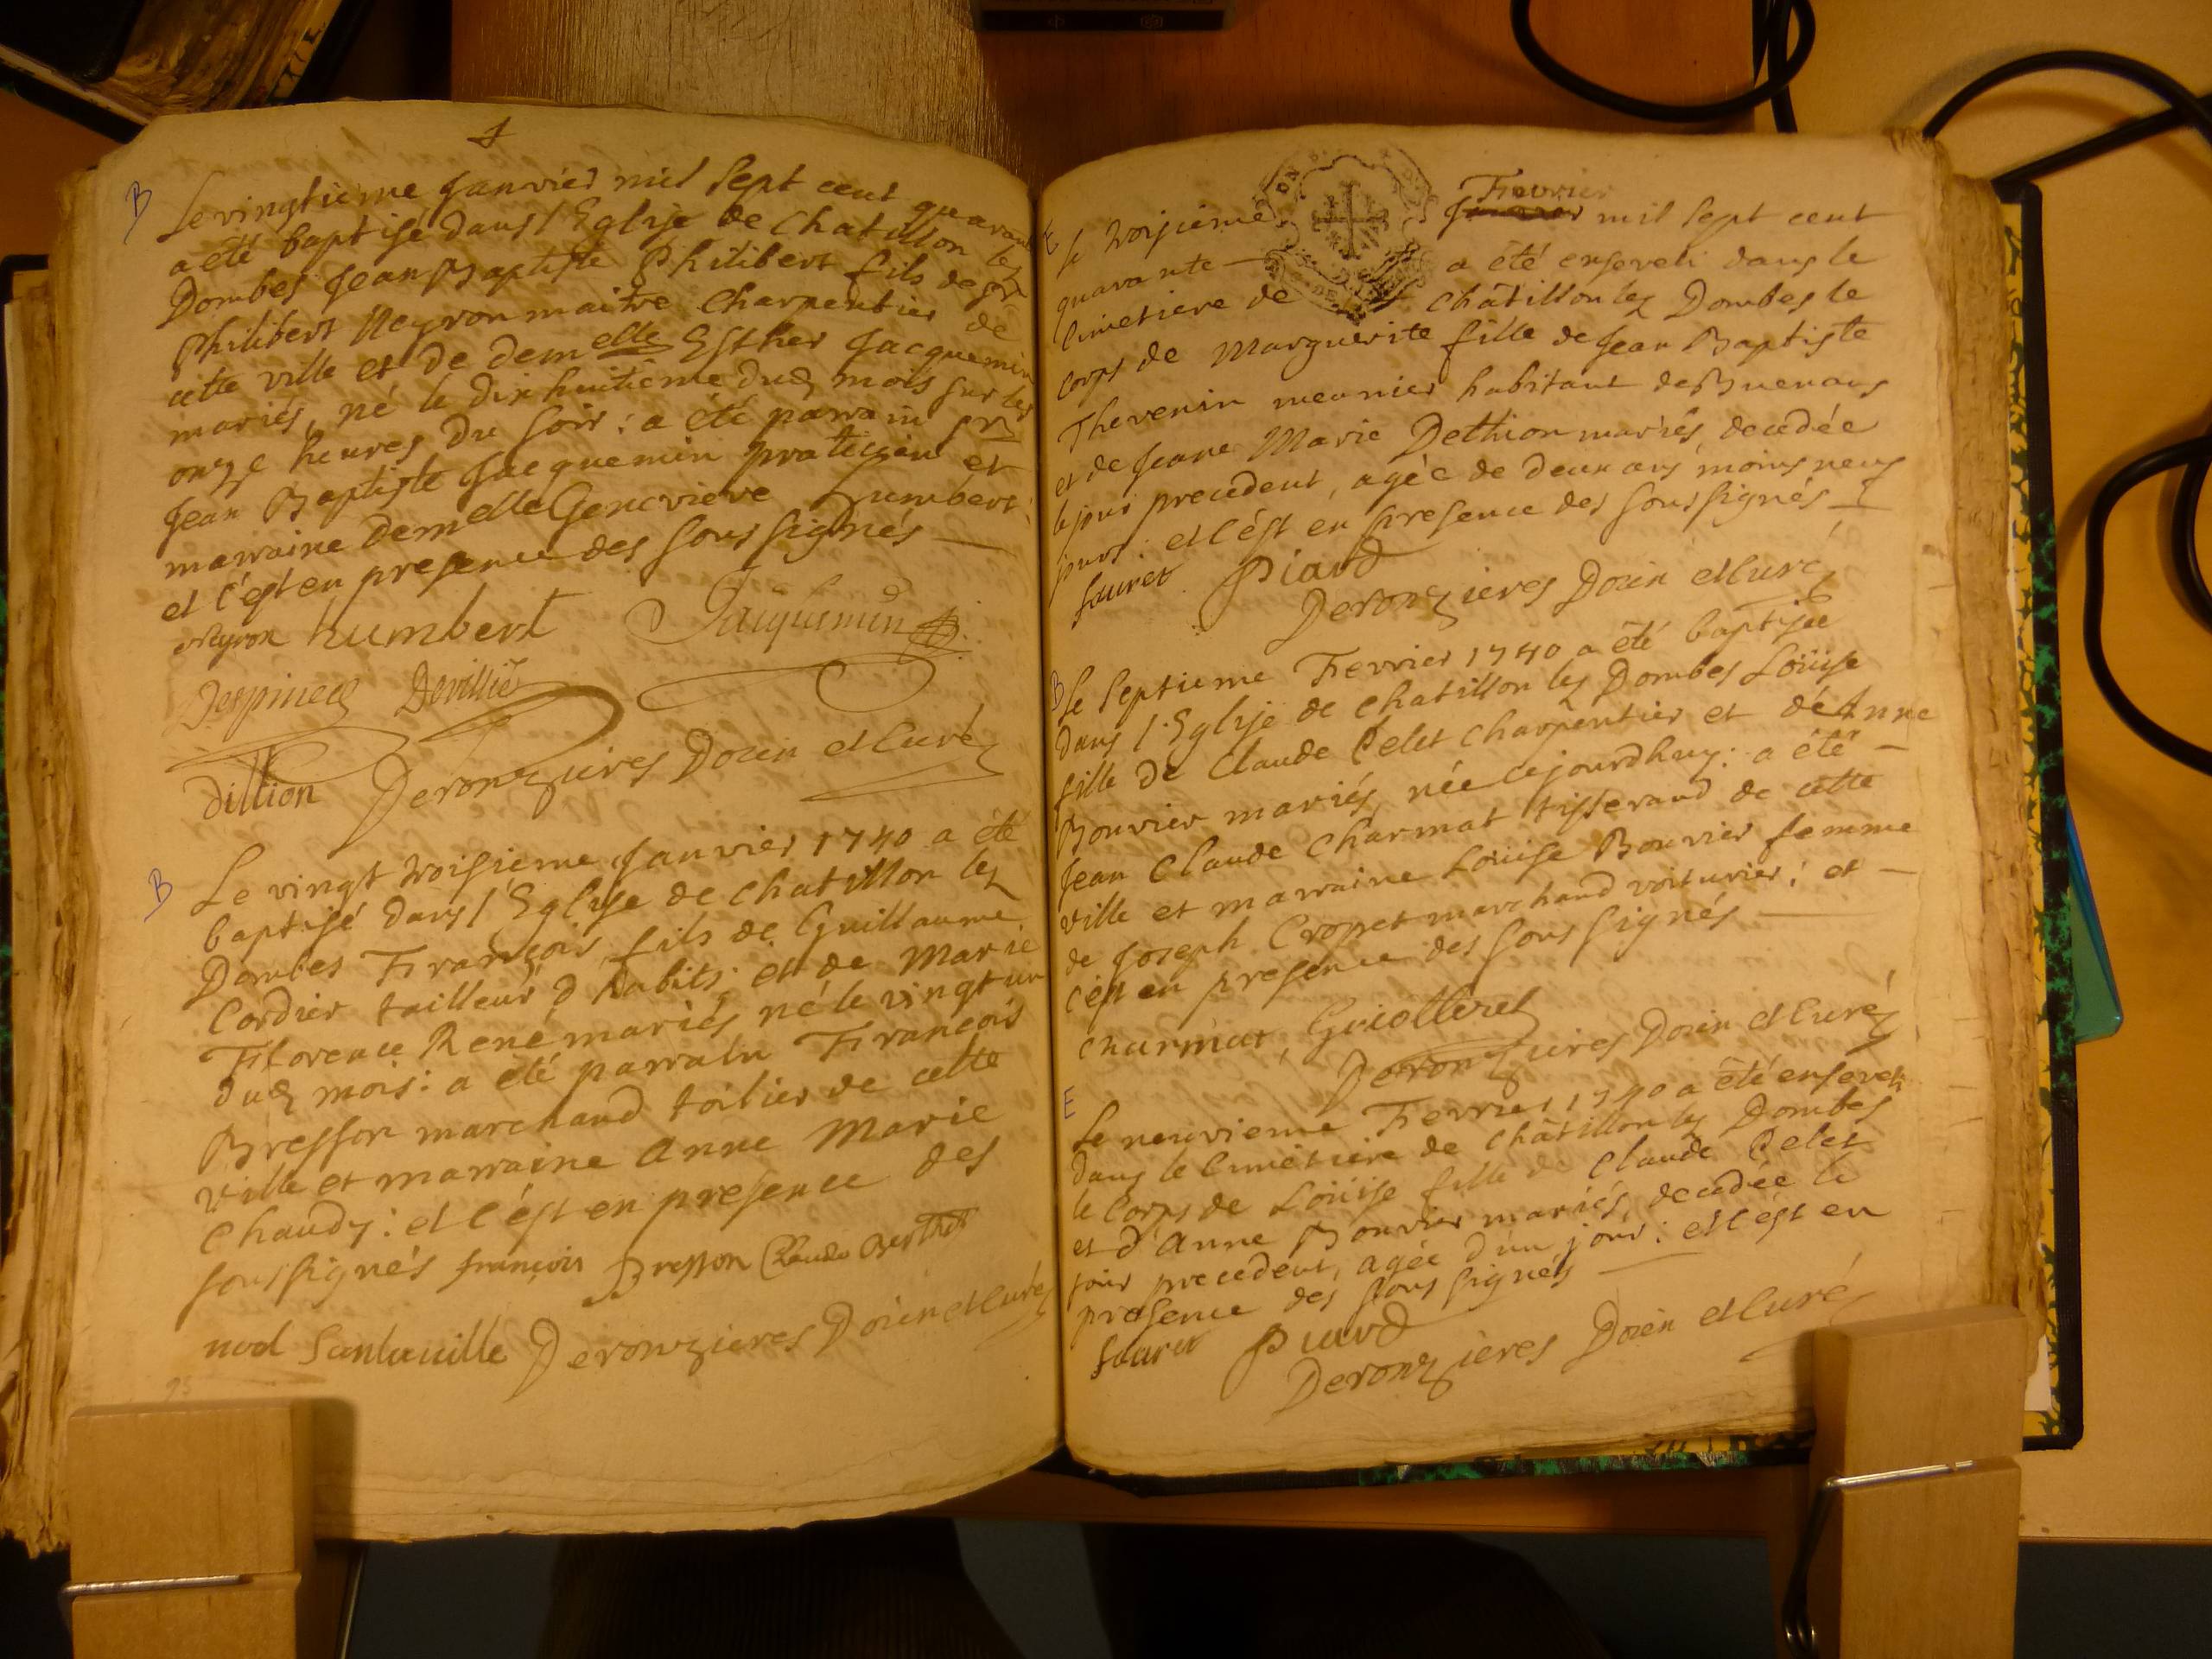 B
Le vingtieme Janvier mil sept cent quarante
a été baptisé dans l'Eglise de Chatillon lez
Dombes Jean Baptiste Philibert fils de Sr
Philibert Neyron maitre Charpentier de
cette ville et de demelle Esther Jacquemin
mariés, né le dix huitieme dud mois sur les
onze heures du soir : a été parrain Sr
Jean Baptiste Jacquemin praticien et
marraine demelle Genevieve humbert :
et c'est en presence des sous signés
Neyron humbert Jacquemin
Despiney Devillie
dillion Deronzieres Doïen et Curé
B
Le vingt troisieme Janvier 1740 a été
baptisé dans l'Eglise de Chatillon lez
Dombes François fils de Guillaume
Cordier tailleur d'habits, et de Marie
Florence René mariés, né le vingt un
dud mois : a été parrain François
Bresson marchand toilier de cette
ville et marraine Anne Marie
Chaudy : et c'est en presence des
sous signés françois Bresson Claude
Deronzieres Doïen et Curé
E
le troisieme Fevrier mil sept cent
quarante a été enseveli dans le
Cimetiere de Châtillon lez Dombes le
corps de Marguerite fille de Jean Baptiste
Thevenin meunier habitant de Buenans
et de Jeane Marie Dethion mariés, decedée
le jour precedent, agée de deux ans moins neuf
jours : et c'est en presence des sous signés
fauret Piard
Deronzieres Doïen et Curé
B
Le septieme Fevrier 1740 a été baptisée
dans l'Eglise de Chatillon lez Dombes Loüise
fille de Claude Pelet Charpentier et de Anne
Bouvier mariés, née cejourdhuy : a été
Jean Claude Charmat tisserand de cette
ville et marraine Loüise Bouvier femme
de Joseph Cropet marchand voiturier ; et
c'est en presence des sous signés
charmat, Guiotteret
Deronzieres Doïen et Curé
E
Le neuvieme Fevrier 1740 a été enseveli
dans le Cimetiere de Châtillon lez Dombes
le Corps de Loüise fille de Claude Pelet
et d'Anne Bouvier mariés, decedée le
jour precedent, agée d'un jour : et c'est en
presence des sous signés
fauret Piard
Deronzieres Doïen et Curé